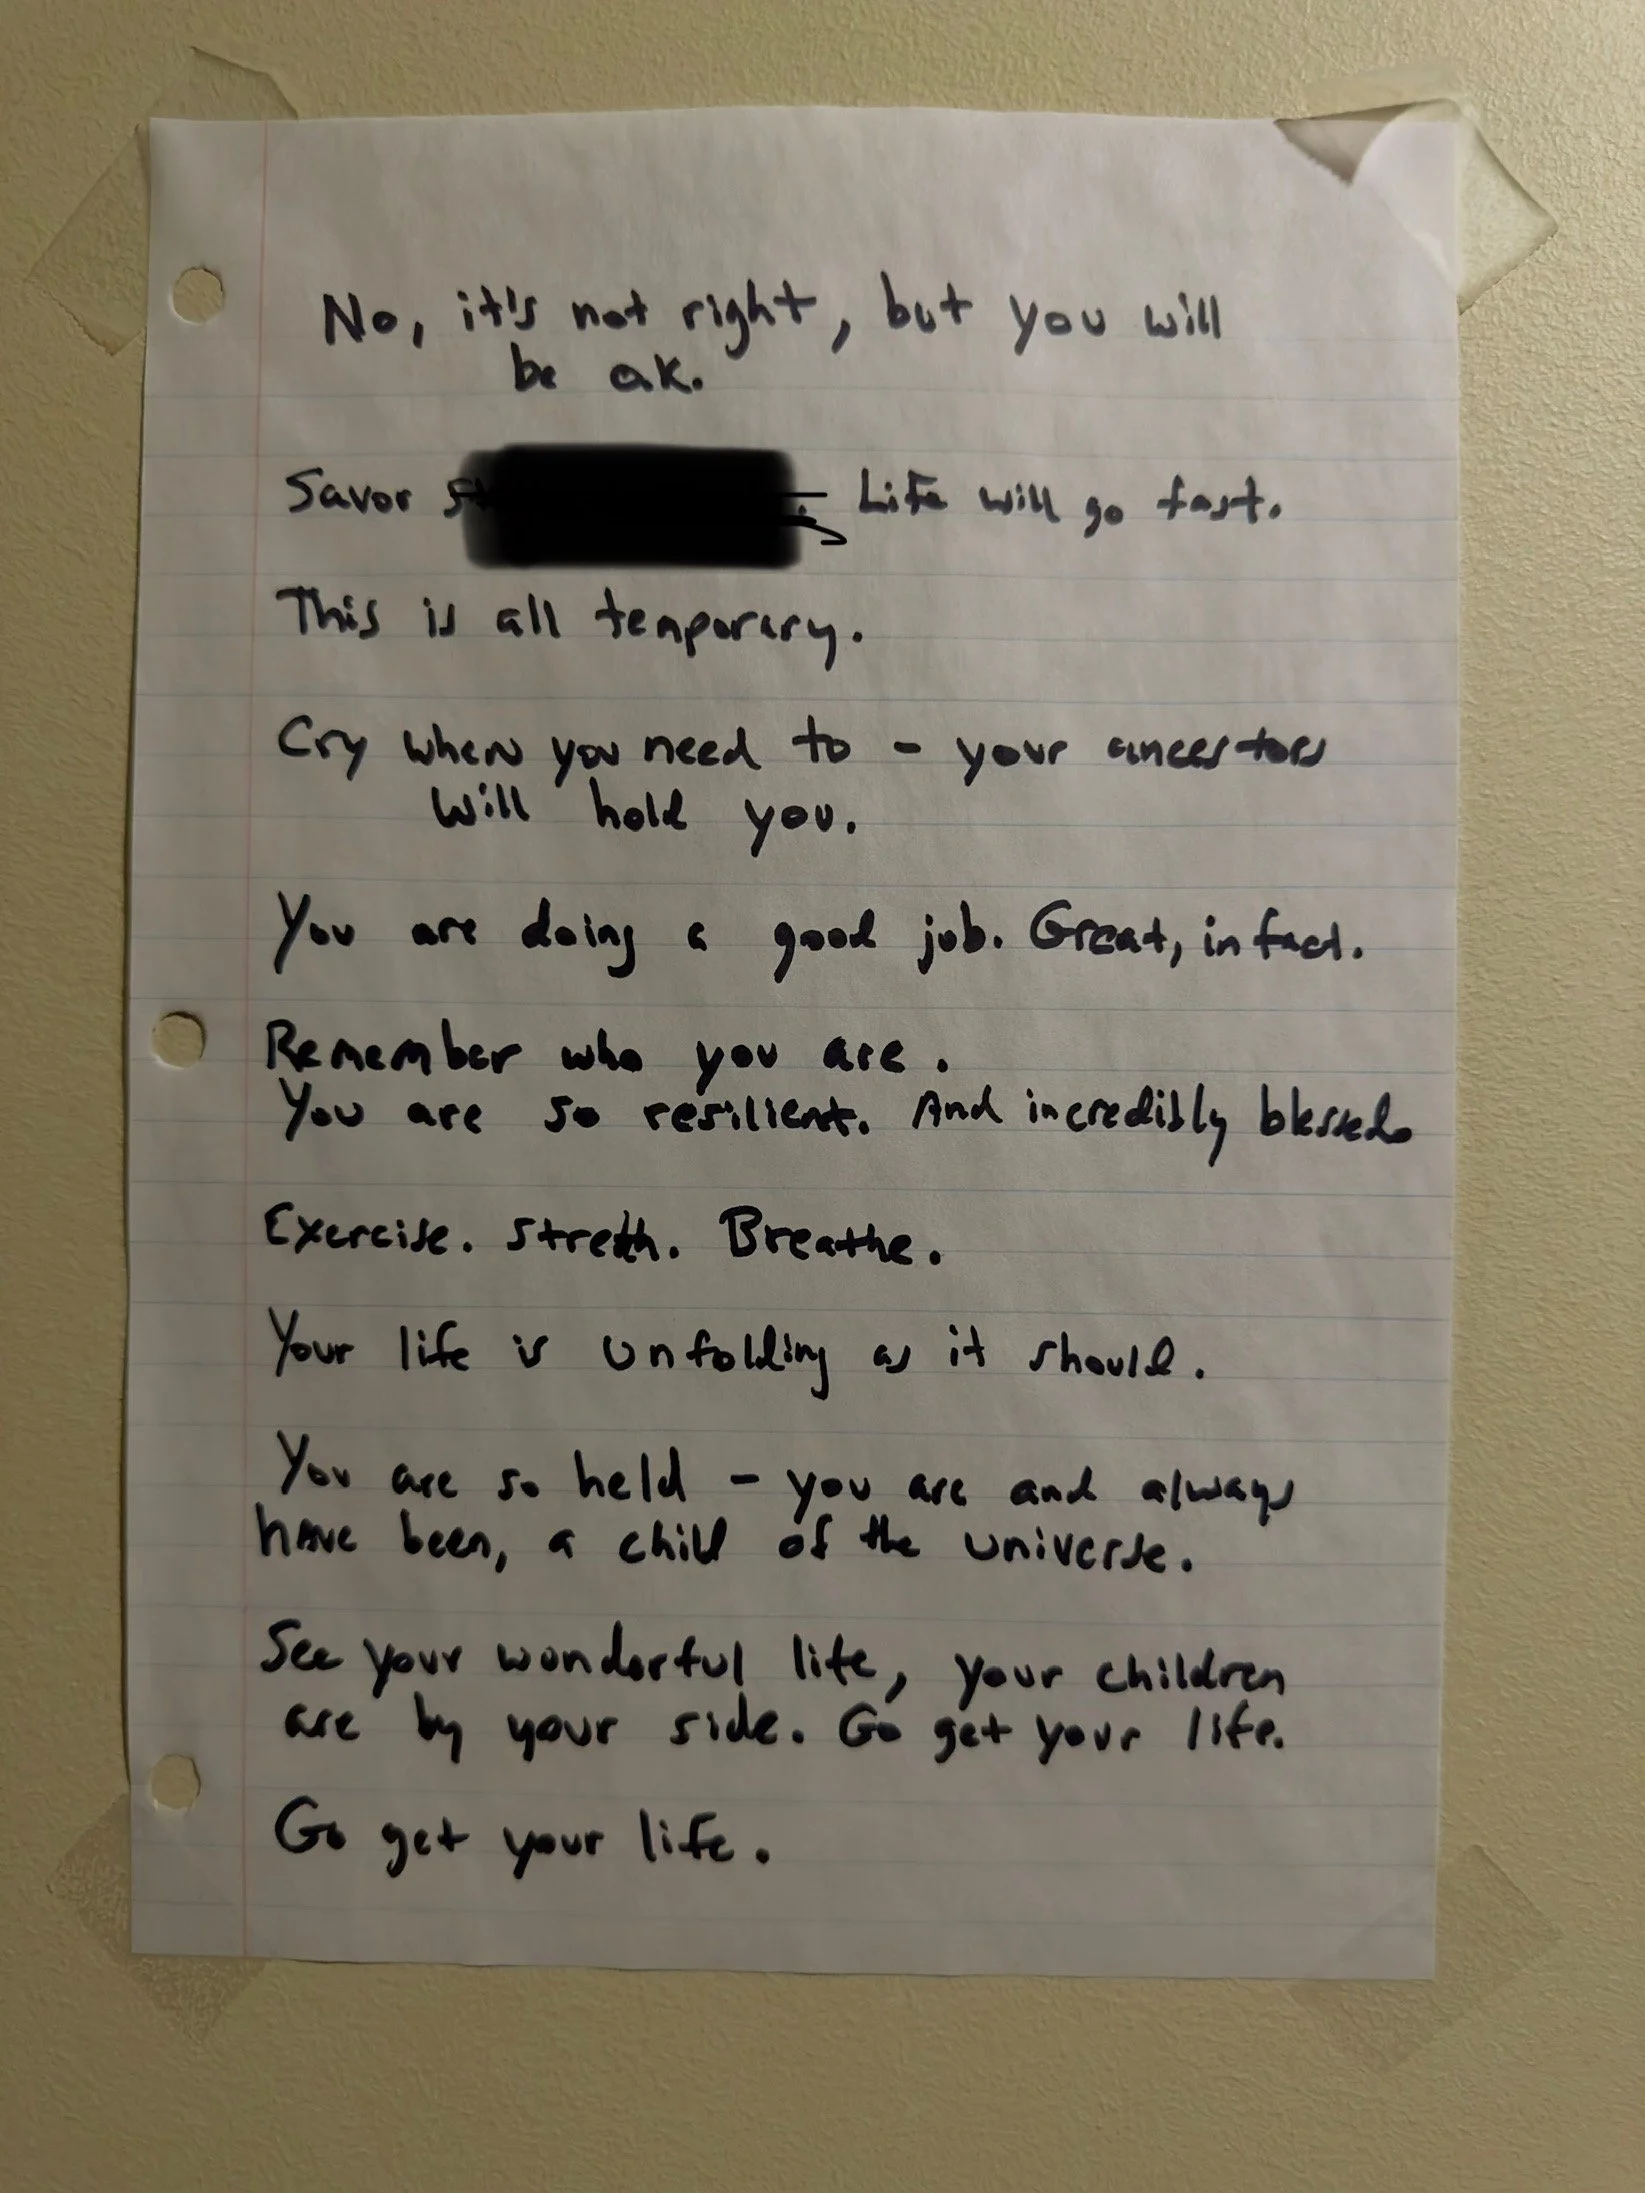 No, it's not right, but you will
be ok.
Savor Life will go fast.
This is all temporary.
Cry when you need to - your ancestors
will hold you.
You are doing a good job. Great, in fact.
Remember who you are.
You are so resilient. And incredibly blessed.
Exercise. Stretch. Breathe.
Your life is unfolding as it should.
You are so held - you are and always
have been, a child of the universe.
See your wonderful life, your children
are by your side. Go get your life.
Go get your life.